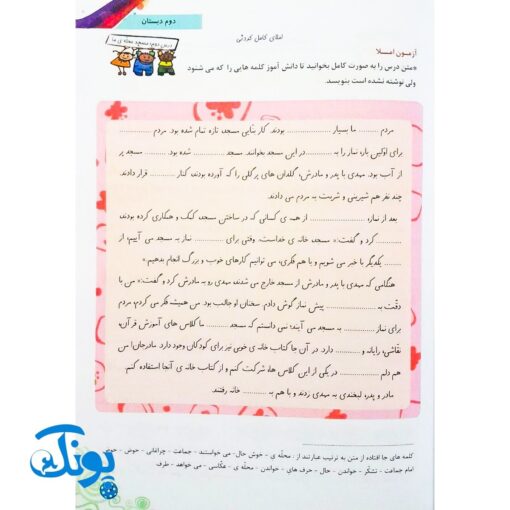 دوم دبستان
درس دوم: مسجد محله ی ما
املای کامل کردنی
آزمون املا
*متن درس را به صورت کامل بخوانید تا دانش آموز کلمه هایی را که می شنود
ولی نوشته نشده است بنویسد.
مردم ........ ما بسیار .................. بودند. کار بنّایی مسجد، تازه تمام شده بود. مردم ..........
برای اوّلین بار، نماز را به ............ در این مسجد بخوانند. مسجد .............. شده بود. ............ مسجد پر
از آب بود. مهدی با پدر و مادرش، گلدان های پر گلی را که آورده بودند، کنار .......... قرار دادند.
چند نفر هم شیرینی و شربت به مردم می دادند.
بعد از نماز، .................. از همه ی کسانی که در ساختن مسجد، کمک و همکاری کرده بودند،
.......... کرد و گفت: « مسجد، خانه ی خداست. وقتی برای ............ نماز به مسجد می آییم، از
........ یکدیگر با خبر می شویم و با هم فکری، می توانیم کارهای خوب و بزرگ انجام بدهیم.»
هنگامی که مهدی با پدر و مادرش از مسجد خارج می شدند، مهدی رو به مادرش کرد و گفت: « من با
دقّت به ................ پیش نماز گوش دادم. سخنان او جالب بود. من همیشه فکر می کردم، مردم
برای نماز ............ به مسجد می آیند؛ نمی دانستم که مسجد ......... ما کلاس های آموزش قرآن،
نقّاشی، رایانه و .......... دارد. در آن جا کتاب خانه ی خوبی نیز برای کودکان وجود دارد. مادرجان! من
هم دلم .............. در یکی از این کلاس ها، شرکت کنم و از کتاب خانه ی آنجا استفاده کنم.
مادر و پدر، لبخندی به مهدی زدند و با هم به .......... خانه رفتند.
کلمه های جا افتاده از متن به ترتیب عبارتند از : محلّه ی - خوش حال - می خواستند - جماعت - چراغانی - حوض - حوض
امام جماعت - تشکّر - خواندن - حال - حرف های - خواندن - محلّه ی - عکّاسی - می خواهد - طرف
پونک